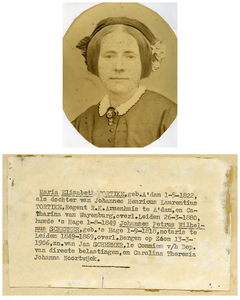 Maria Elisabeth TORTIKE,geb.A'dam 1-8-1822,
als dochter van Johannes Henricus Laurentius
TORTIKE,Regent R.K.Armenhuis te A'dam,en Ca-
tharina van Wayenburg,overl.Leiden 26-3-1880,
huwde 's Hage 1-8-1849 Johannes Petrus Wilhel-
mus SCHREKEN,geb.'s Hage 1-9-1818,notaris te
Leiden 1849-1869,overl.Bergen op Zoom 13-3-
1906,zn.van Jan SCHREKEN,1e Commies v/h Dep.
van directe belastingen,en Carolina Theresia
Johanna Noortwijck.